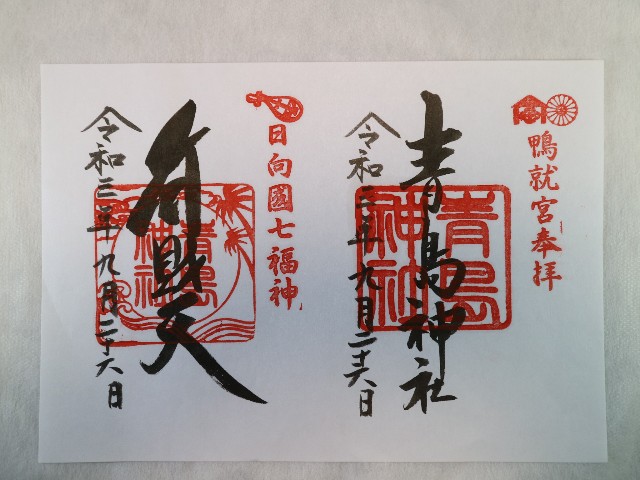 鴨就宮奉拝
青島神社
青島神社
令和三年九月二十六日
日向國七福神
弁財天
青島神社
令和三年九月二十六日